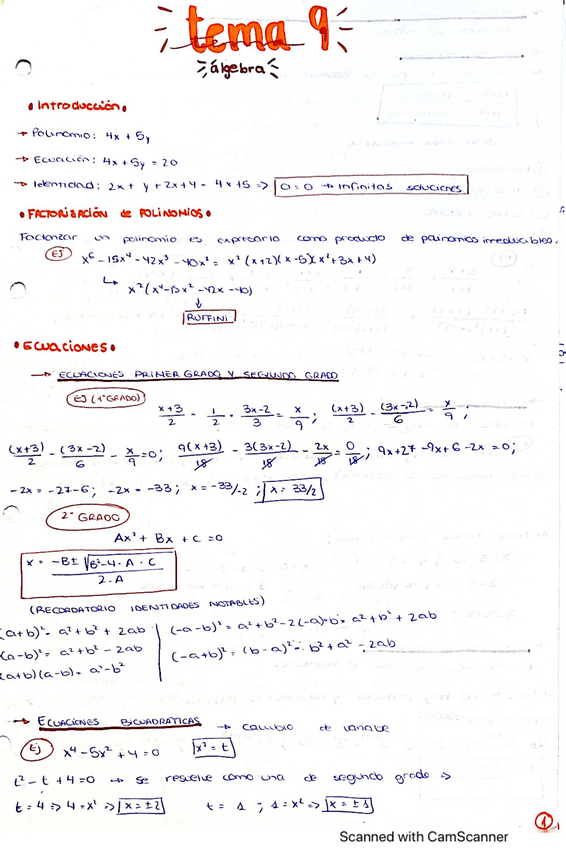 tema 9
álgebra
• Introducción •
→ Polinomio: 4x + 5y
→ Ecuación: 4x + 5y = 20
→ Identidad: 2x + y + 2x + 4 - 4x + 5 => 0 = 0 → Infinitas soluciones
• FACTORIZACIÓN de POLINOMIOS •
Factorizar un polinomio es expresarlo como producto de polinomios irreducibles.
EJ x⁶ - 15x⁴ - 42x³ - 40x² = x² (x+2)(x-5)(x²+3x+4)
↳ x² (x⁴ - 15x² - 42x - 40)
↓
RUFFINI
• Ecuaciones •
→ ECUACIONES PRIMER GRADO Y SEGUNDO GRADO
EJ (1º GRADO)
(x+3)/2 - 1/2 · (3x-2)/3 = x/9 ; (x+3)/2 - (3x-2)/6 = x/9 ;
(x+3)/2 - (3x-2)/6 - x/9 = 0; 9(x+3)/18 - 3(3x-2)/18 - 2x/18 = 0/18; 9x+27-9x+6-2x = 0;
-2x = -27-6; -2x = -33; x = -33/-2 ; x = 33/2
2º GRADO
Ax² + Bx + C = 0
x = (-B ± √(B²-4·A·C)) / (2·A)
(RECORDATORIO IDENTIDADES NOTABLES)
(a+b)² = a² + b² + 2ab | (-a-b)² = a² + b² - 2(-a)·b = a² + b² + 2ab
(a-b)² = a² + b² - 2ab | (-a+b)² = (b-a)² = b² + a² - 2ab
(a+b)(a-b) = a² - b²
→ ECUACIONES BICUADRÁTICAS → cambio de variable
Ej x⁴ - 5x² + 4 = 0 x² = t
t² - t + 4 = 0 → se resuelve como una de segundo grado =>
t = 4 => 4 = x² => x = ±2 t = 1 ; 1 = x² => x = ±1
1
Scanned with CamScanner